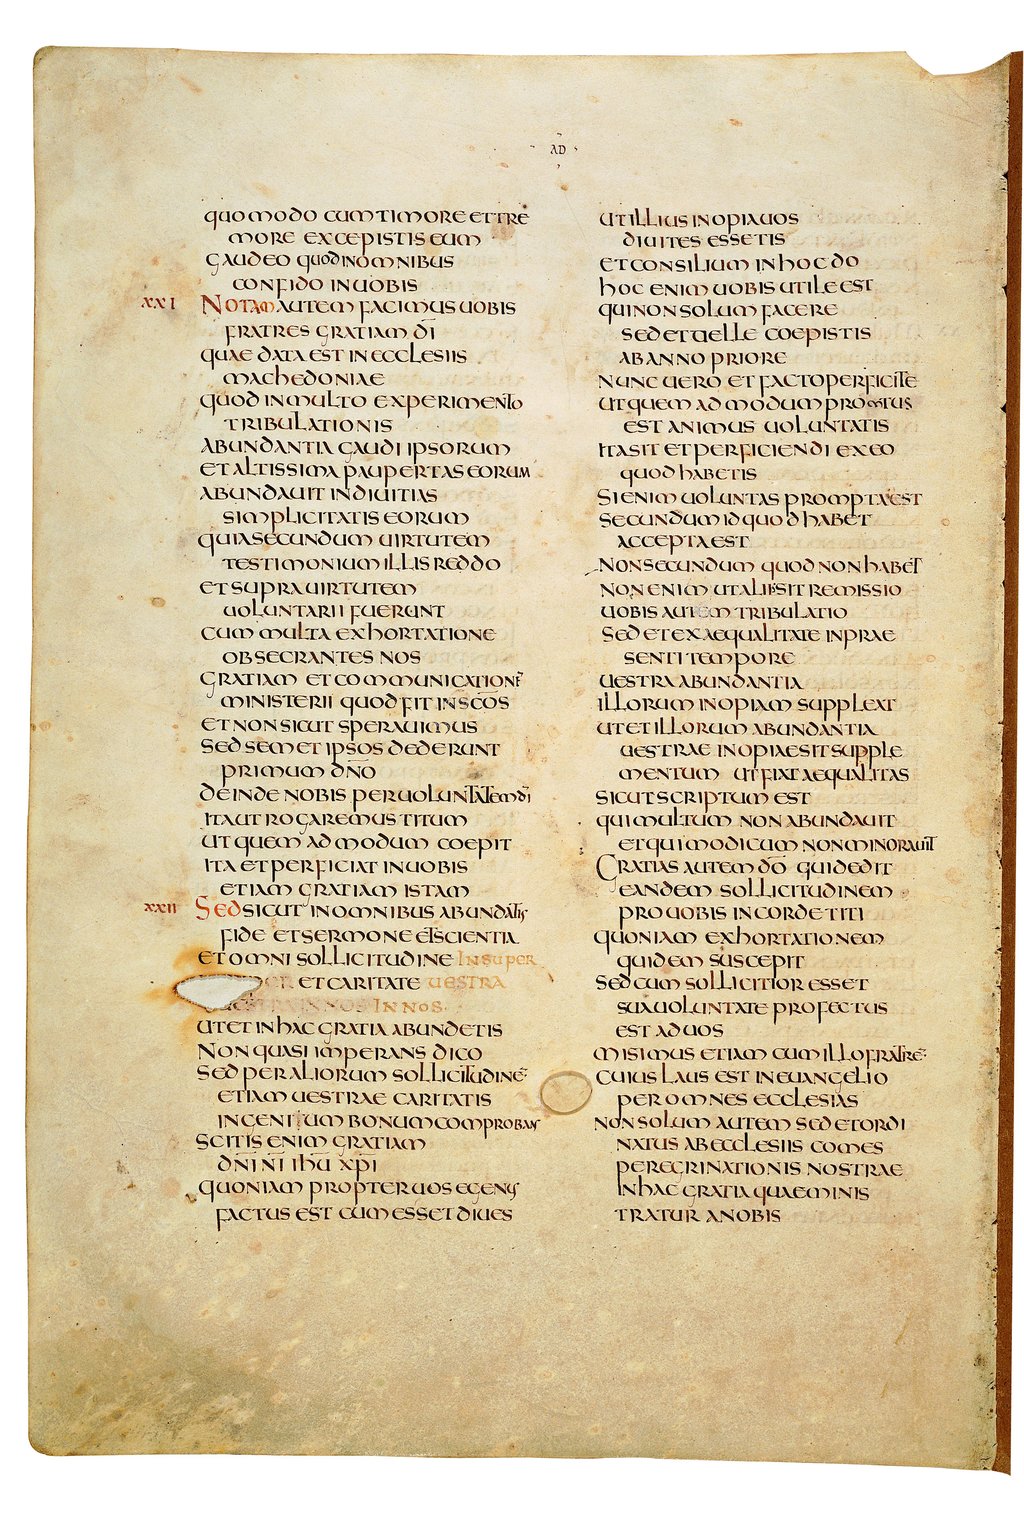 AD
quomodo cum timore et tre
more excepistis eum
gaudeo quod in omnibus
confido in uobis
XXI Notam autem facimus uobis
fratres gratiam dī
quae data est in ecclesiis
machedoniae
quod in multo experimento
tribulationis
abundantia gaudi ipsorum
et altissima paupertas eorum
abundauit in diuitias
simplicitatis eorum
quia secundum uirtutem
testimonium illis reddo
et supra uirtutem
uoluntarii fuerunt
cum multa exhortatione
obsecrantes nos
gratiam et communicationē
ministerii quod fit in scōs
et non sicut sperauimus
sed semet ipsos dederunt
primum dn̄o
deinde nobis per uoluntatem dī
ita ut rogaremus titum
ut quem ad modum coepit
ita et perficiat in uobis
etiam gratiam istam
XXII Sed sicut in omnibus abundatis
fide et sermone et scientia
et omni sollicitudine insuper
et caritate uestra
in nos
ut et in hac gratia abundetis
Non quasi imperans dico
sed per aliorum sollicitudinē
etiam uestrae caritatis
ingenium bonum comproban
scitis enim gratiam
dn̄i n̄i ihū xp̄i
quoniam propter uos egenus
factus est cum esset diues
ut illius inopia uos
diuites essetis
et consilium in hoc do
hoc enim uobis utile est
qui non solum facere
sed et uelle coepistis
ab anno priore
Nunc uero et facto perficite
ut quem ad modum promtus
est animus uoluntatis
ita sit et perficiendi ex eo
quod habetis
Si enim uoluntas prompta est
secundum id quod habet
accepta est
Non secundum quod non habet
Non enim ut aliis sit remissio
uobis autem tribulatio
sed et ex aequalitate in prae
senti tempore
uestra abundantia
illorum inopiam suppleat
ut et illorum abundantia
uestrae inopiae sit supple
mentum ut fiat aequalitas
sicut scriptum est
qui multum non abundauit
et qui modicum non minorauit
Gratias autem dō qui dedit
eandem sollicitudinem
pro uobis in corde titi
quoniam exhortationem
quidem suscepit
sed cum sollicitior esset
sua uoluntate profectus
est ad uos
misimus etiam cum illo fratrē
cuius laus est in euangelio
per omnes ecclesias
non solum autem sed et ordi
natus ab ecclesiis comes
peregrinationis nostrae
in hac gratia quae minis
tratur a nobis